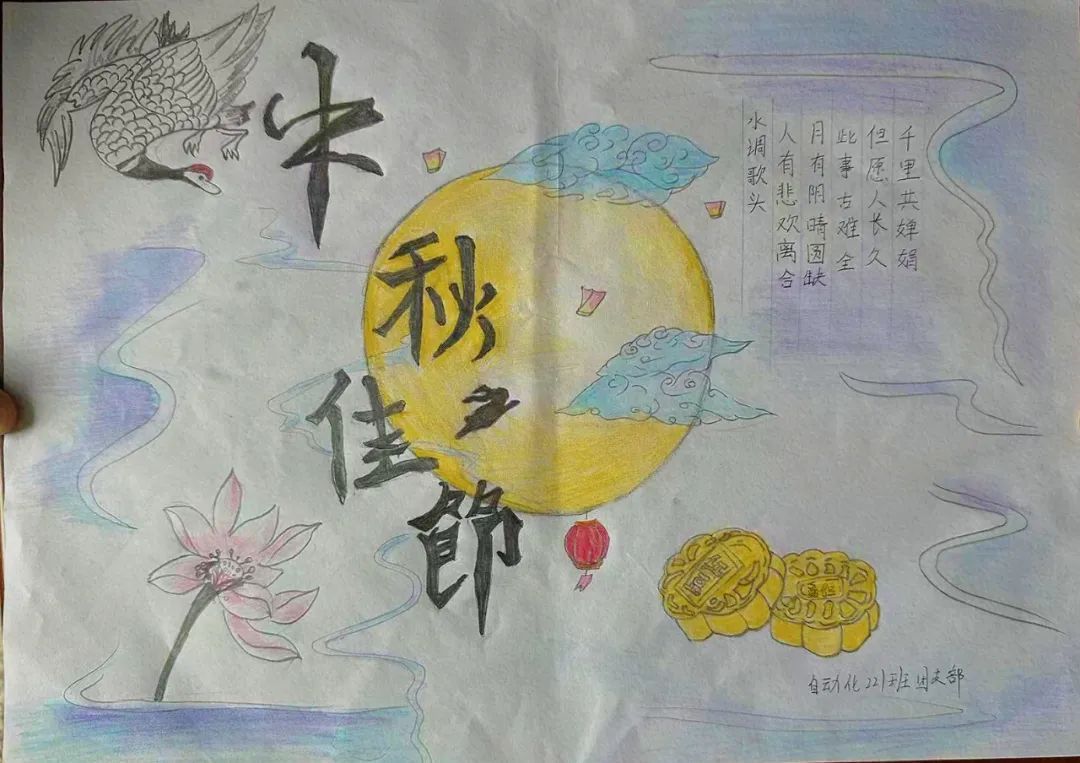 中秋佳節
水调歌头
人有悲欢离合
月有阴晴圆缺
此事古难全
但愿人长久
千里共婵娟
自动化221班团支部